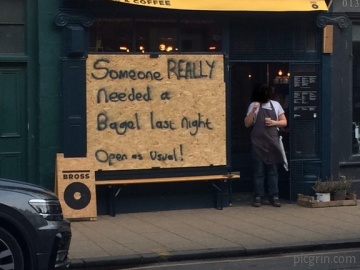 & COFFEE
Someone REALLY
needed a
Bagel last night
Open as Usual!
BROSS
picgrin.com